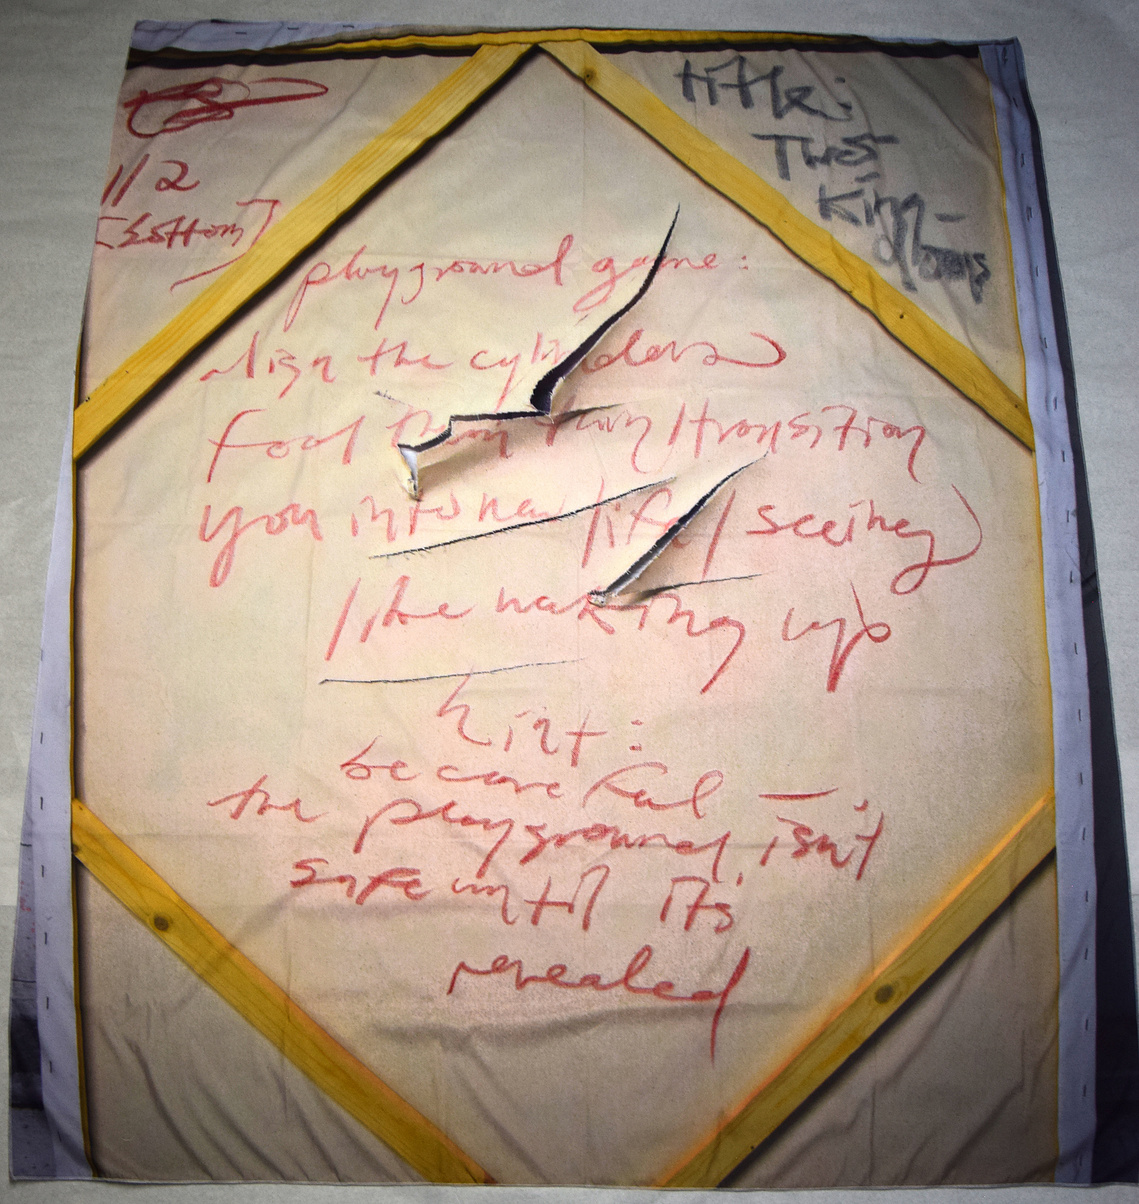 1/2
[bottom]
title:
Two
King-
doms
playground game:
align the cylinders
fool they / transition
you into new life / seeing
like waking up
hint:
be careful —:
the playground isn't
safe until its
revealed